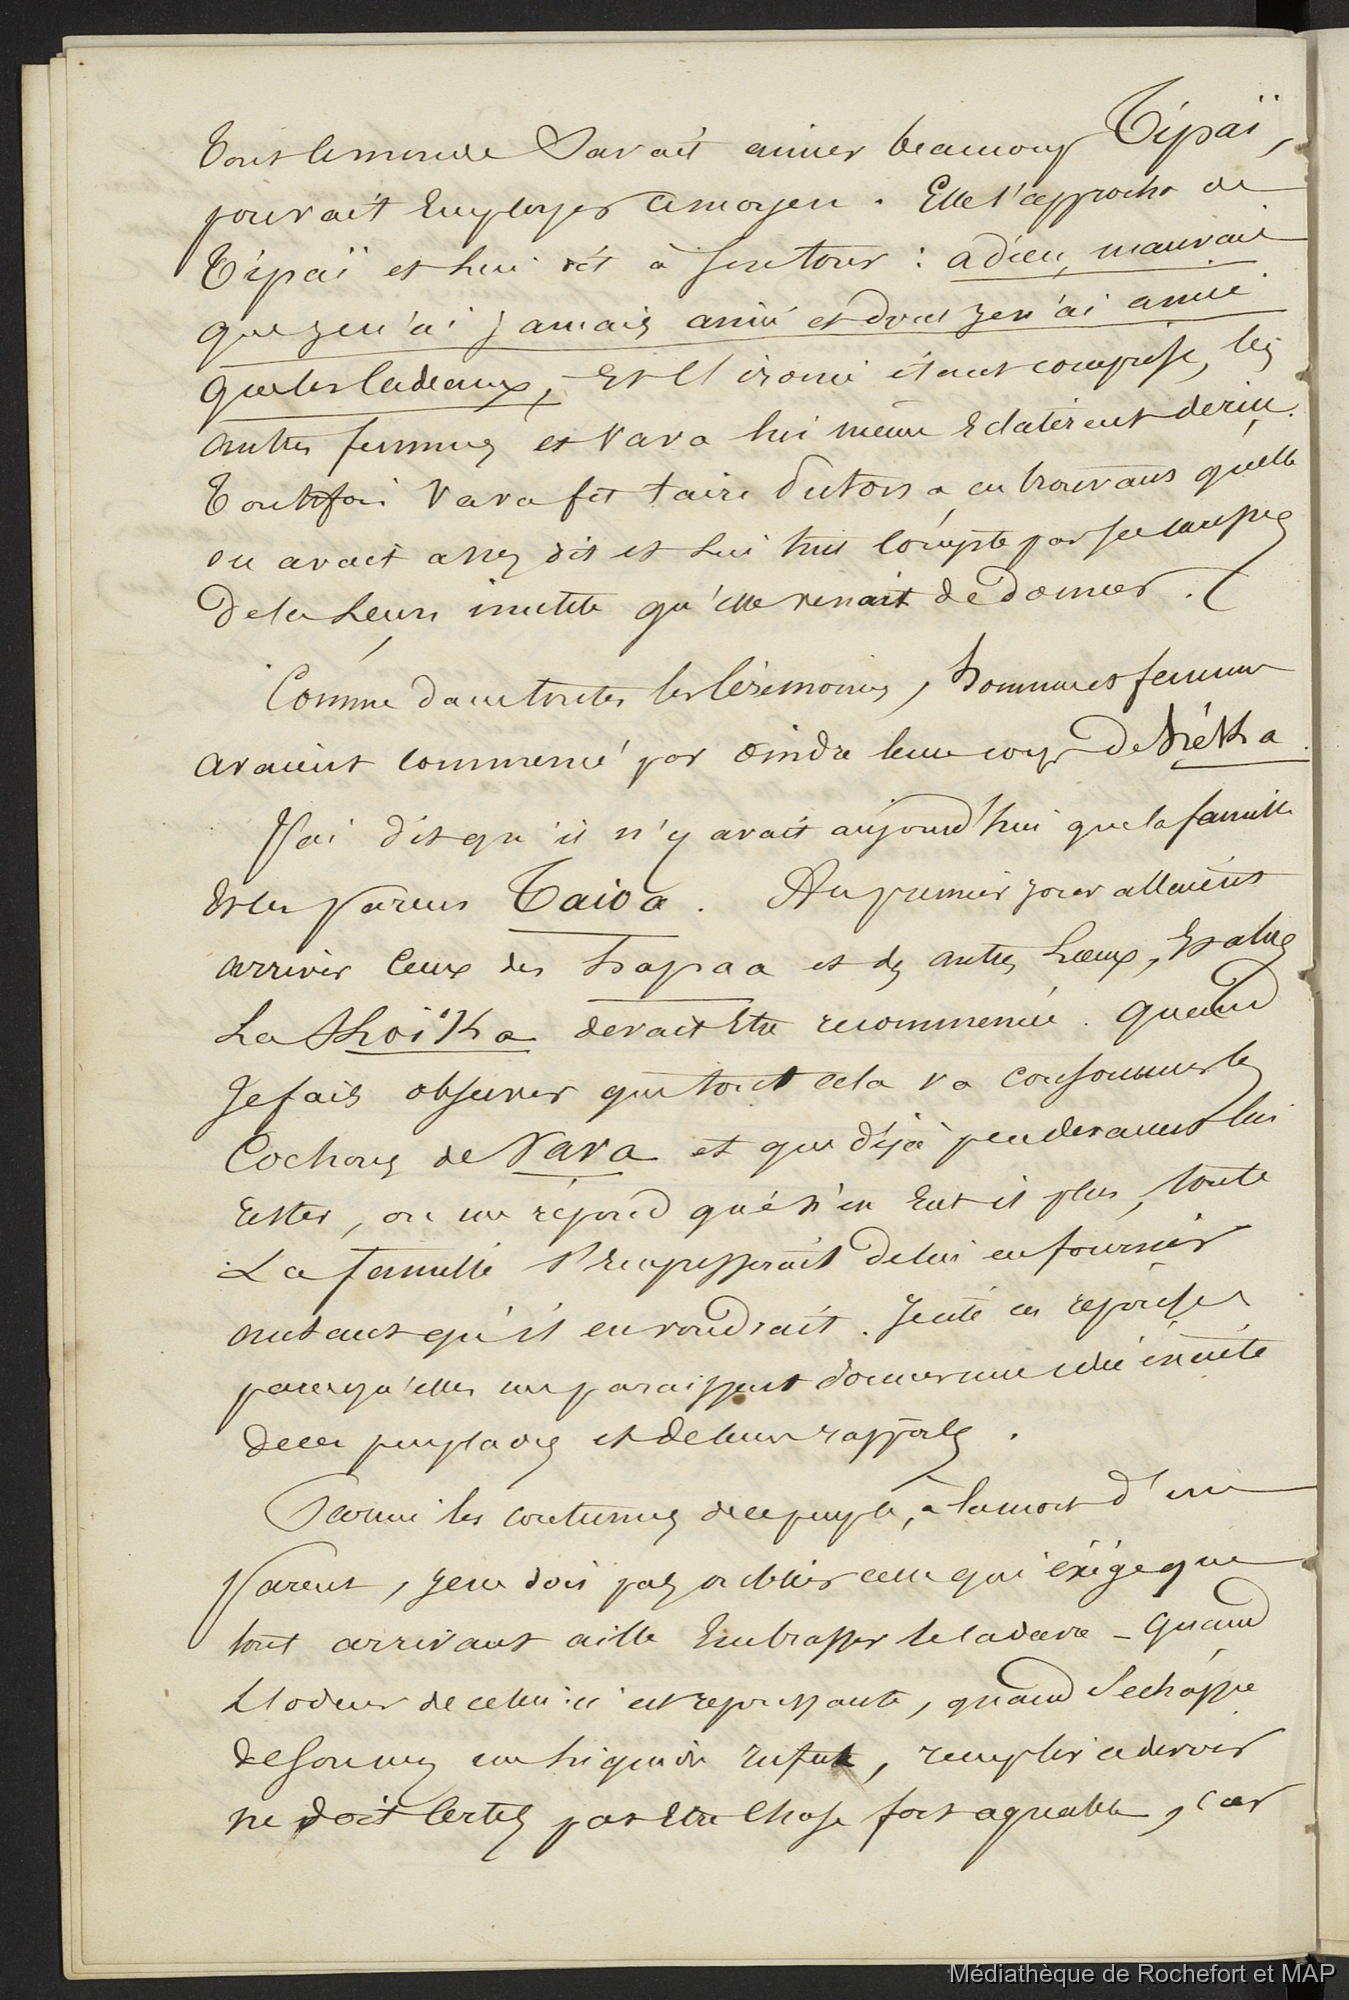 Tout le monde savait aimer beaucoup Tépaï,
pouvait employer ce moyen. Elle s'approcha de
Tépaï et lui dit à son tour : adieu, mauvais
que je n'ai jamais aimé et dont je n'ai aimé
que les cadeaux, Et l'ironie étant comprise, les
autres femmes et Vava lui même éclatèrent de rire.
Toutefois Vava fit taire en trouvant qu'elle
en avait assez dit et lui tint compte par ses
de la leçon inutile qu'elle venait de donner.
Comme dans toutes les cérémonies, hommes et femmes
avaient commencé par oindre leur corps de
J'ai dit qu'il n'y avait aujourd'hui que la famille
Et les parens Taioa. Au premier jour allaient
arriver ceux des hapaa et des autres lieux, Et alors
la devait être recommencée. Quand
Je fais observer que tout cela va consommer les
Cochons de Vava et que déjà peu doivent lui
rester, on me répond que n'en eut-il plus, toute
La famille s'empresserait de lui en fournir
autant qu'il en voudrait. Je cite ces réponses
parce qu'elles me paraissent donner une idée exacte
de ces peuplades et de leurs rapports.
Parmi les coutumes de ce peuple, à la mort d'un
Parent, je ne dois pas oublier celle qui exige que
tout arrivant aille embrasser le cadavre - Quand
L'odeur de celui-ci est repoussante, quand s'échappe
de son nez un liquide infect, remplir ce devoir
ne doit certes pas être chose fort agréable, car
Médiathèque de Rochefort et MAP